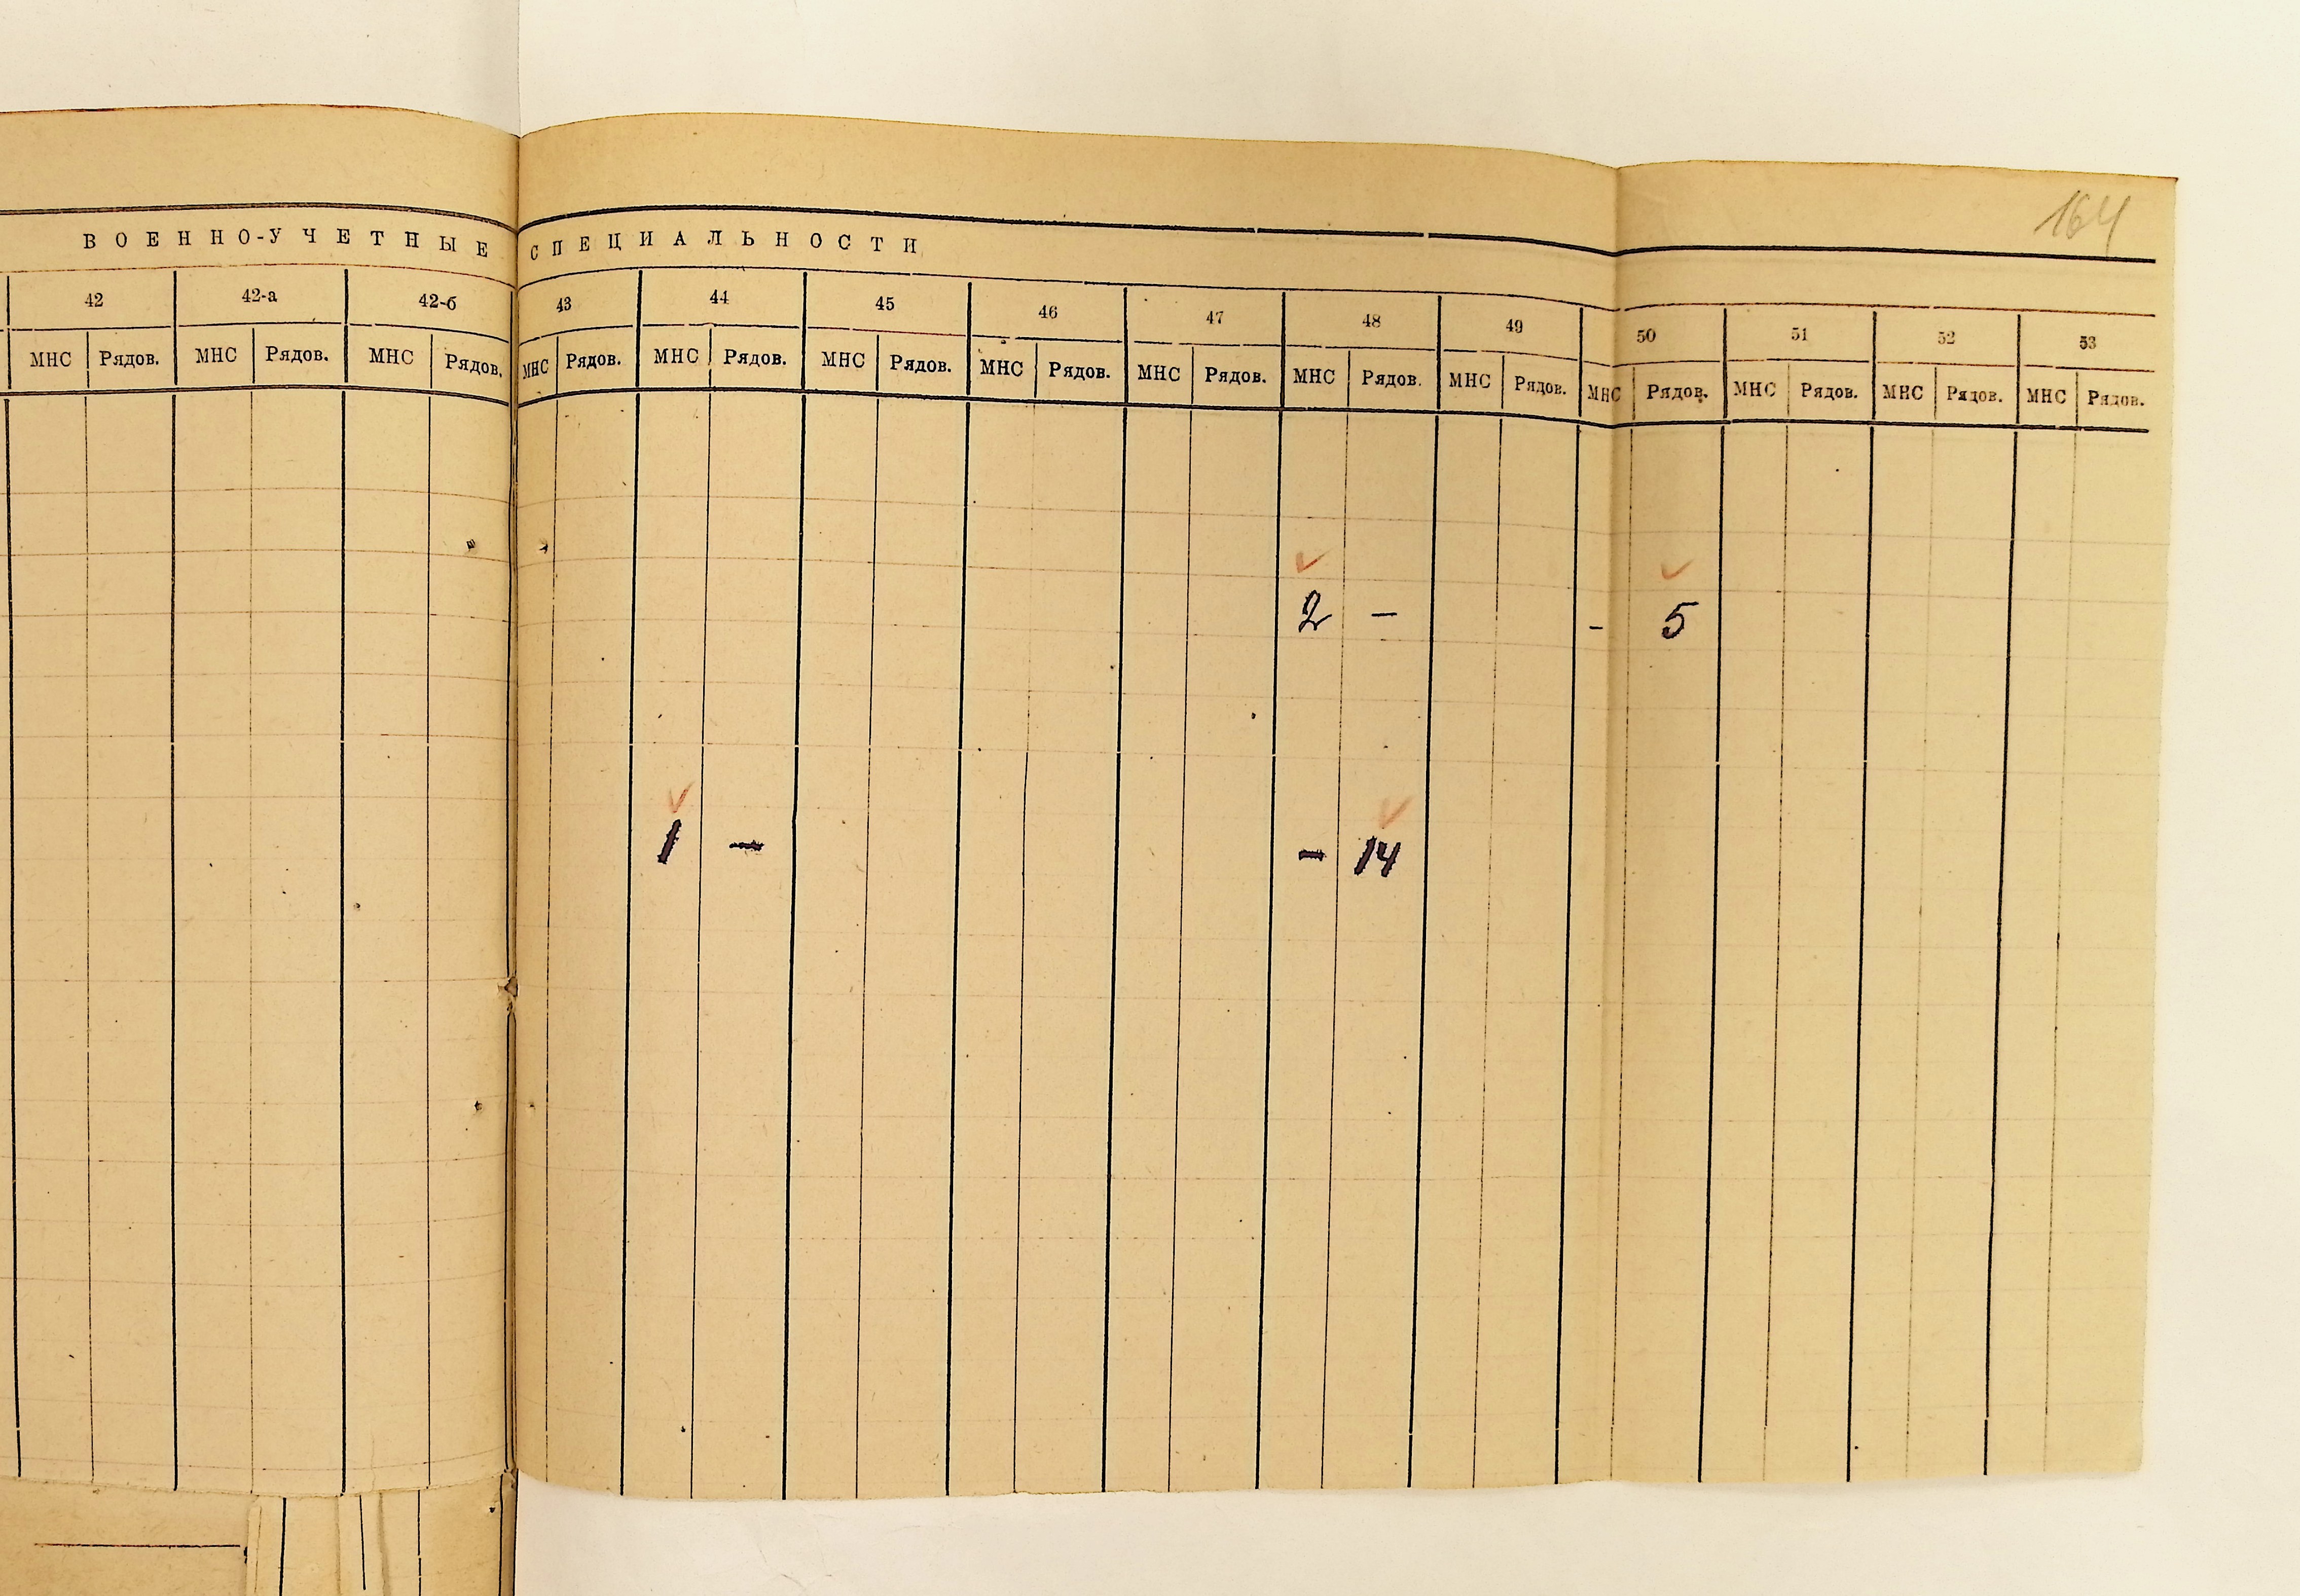 164
ВОЕННО-УЧЕТНЫЕ СПЕЦИАЛЬНОСТИ
42 42-а 42-б 43 44 45 46 47 48 49 50 51 52 53
МНС Рядов. МНС Рядов. МНС Рядов. МНС Рядов. МНС Рядов. МНС Рядов. МНС Рядов. МНС Рядов. МНС Рядов. МНС Рядов. МНС Рядов. МНС Рядов. МНС Рядов. МНС Рядов.
2 - - 5
1 - - 14